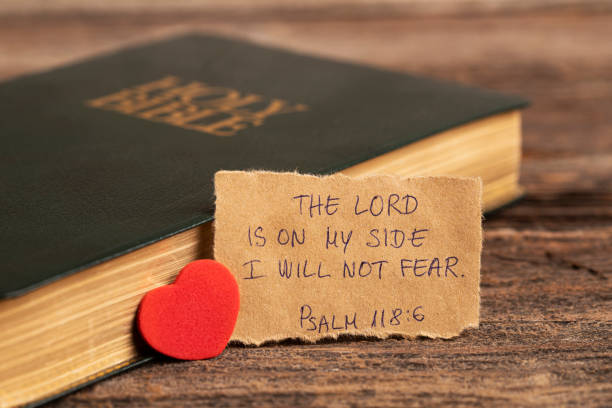 HOLY
BIBLE
THE LORD
IS ON MY SIDE
I WILL NOT FEAR.
PSALM 118:6